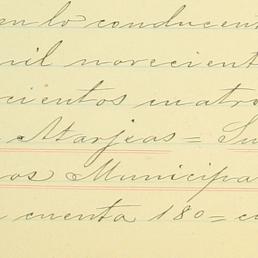 en lo conducent
mil novecient
cientos cuatro
Atarjeas = Su
os Municipa
cuenta 180 = c